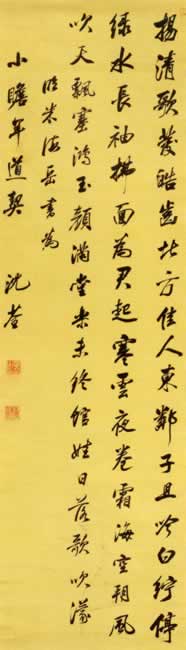 揚清歌發皓齒北方佳人東鄰子且吟白紵停
綠水長袖拂面為君起寒雲夜卷霜海空朔風
吹天飄塞鴻玉顏滿堂樂未終館娃日落歌吹濛
臨米海岳書為
小瞻年道契
沈荃